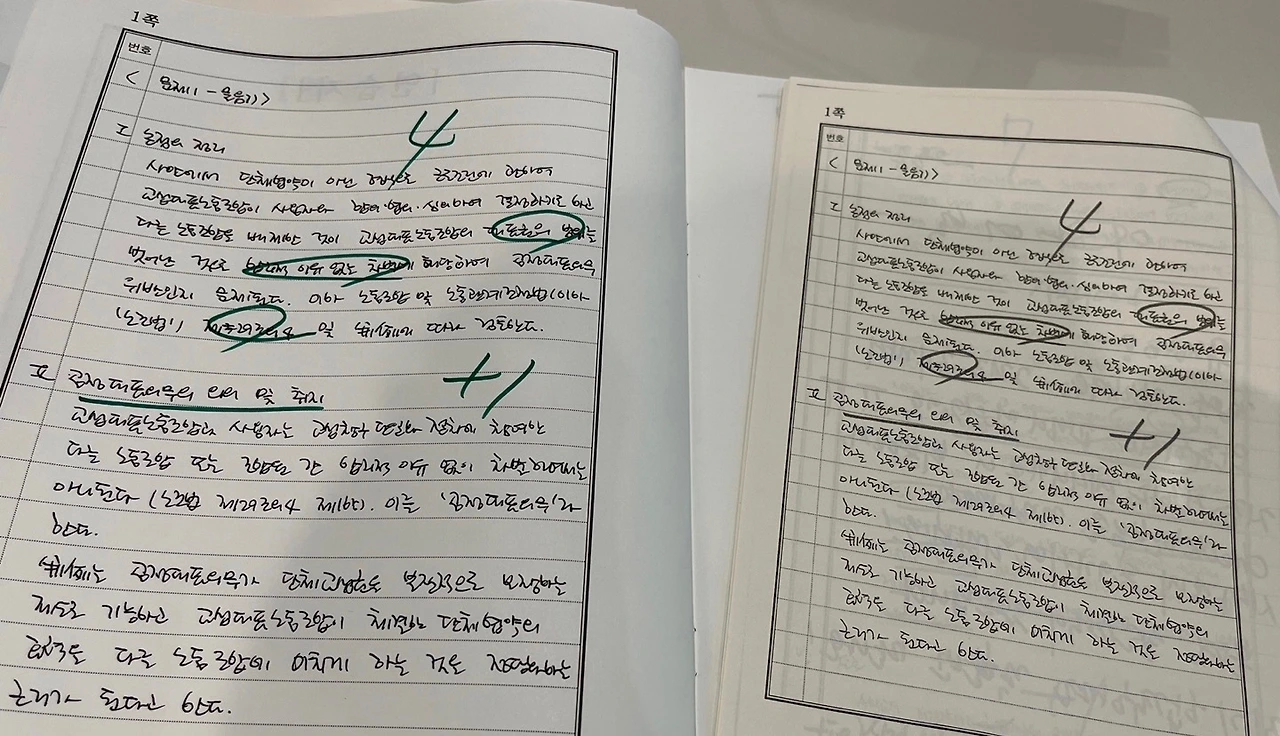 1쪽
번호
< 문제1 - 물음1) >
4
I 논점의 정리
사안에서 단체협약이 아닌 관하여
교섭대표노동조합이 사용자와 결정하기로 하고
다른 노동조합을 배제한 것이 교섭대표노동조합의 대표권의 범위를
벗어난 것으로 합리적 이유 없는 차별에 해당하여 공정대표의무
위반인지 문제된다. 이하 노동조합 및 노동관계조정법(이하
'노조법') 제29조의4 및 判例에 따라 검토한다.
+1
II 공정대표의무의 의의 및 취지
교섭대표노동조합과 사용자는 교섭창구 단일화 절차에 참여한
다른 노동조합 또는 조합원 간 합리적 이유 없이 차별하여서는
아니된다 (노조법 제29조의4 제1항). 이를 '공정대표의무'라
한다.
判例는 공정대표의무가 본질적으로 보장하는
제도로 기능하고 교섭대표노동조합이 체결한 단체협약의
효력을 다른 노동조합에 미치게 하는 것을 정당화하는
근거가 된다고 한다.
1쪽
번호
< 문제1 - 물음1) >
4
I 논점의 정리
사안에서 단체협약이 아닌 관하여
교섭대표노동조합이 사용자와 결정하기로 하고
다른 노동조합을 배제한 것이 교섭대표노동조합의 대표권의 범위를
벗어난 것으로 합리적 이유 없는 차별에 해당하여 공정대표의무
위반인지 문제된다. 이하 노동조합 및 노동관계조정법(이하
'노조법') 제29조의4 및 判例에 따라 검토한다.
+1
II 공정대표의무의 의의 및 취지
교섭대표노동조합과 사용자는 교섭창구 단일화 절차에 참여한
다른 노동조합 또는 조합원 간 합리적 이유 없이 차별하여서는
아니된다 (노조법 제29조의4 제1항). 이를 '공정대표의무'라
한다.
判例는 공정대표의무가 본질적으로 보장하는
제도로 기능하고 교섭대표노동조합이 체결한 단체협약의
효력을 다른 노동조합에 미치게 하는 것을 정당화하는
근거가 된다고 한다.